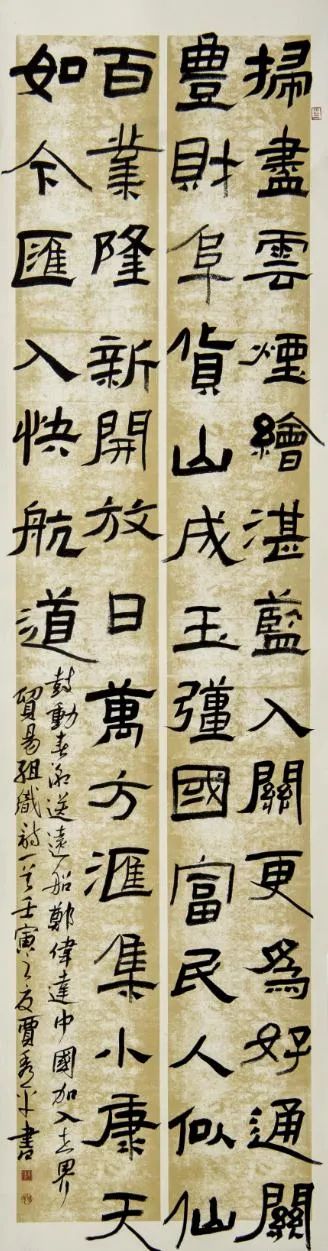 掃盡雲煙繪湛藍入關更爲好通關
豐財阜貨山成玉彊國富民人似仙
百業隆新開放日萬方滙集小康天
如今匯入快航道
鼓動春送遠船鄭偉達中國加入世界
貿易組織詩一首壬寅之夏賈秀平書